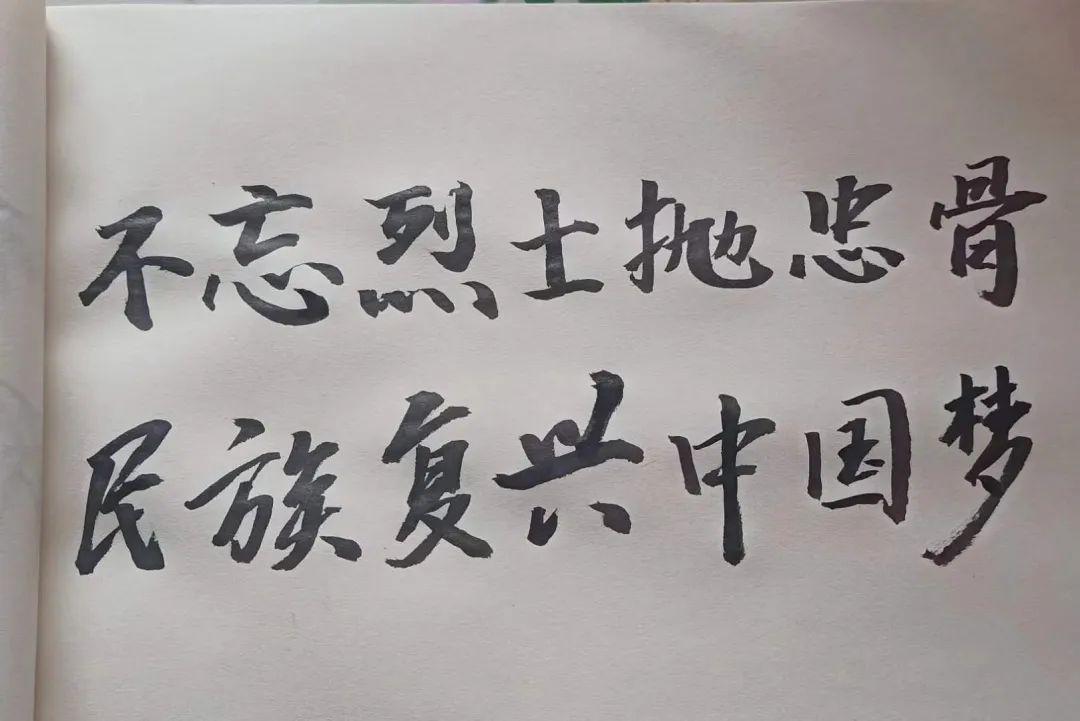 不忘烈士抛忠骨
民族复兴中国梦